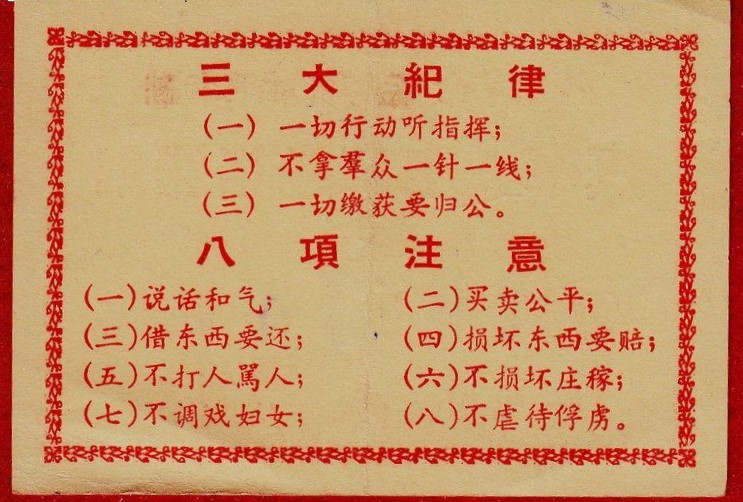 三大紀律
(一) 一切行动听指挥；
(二) 不拿羣众一针一线；
(三) 一切缴获要归公。
八項注意
(一)说话和气； (二)买卖公平；
(三)借东西要还； (四)损坏东西要赔；
(五)不打人駡人； (六)不损坏庄稼；
(七)不调戏妇女； (八)不虐待俘虏。